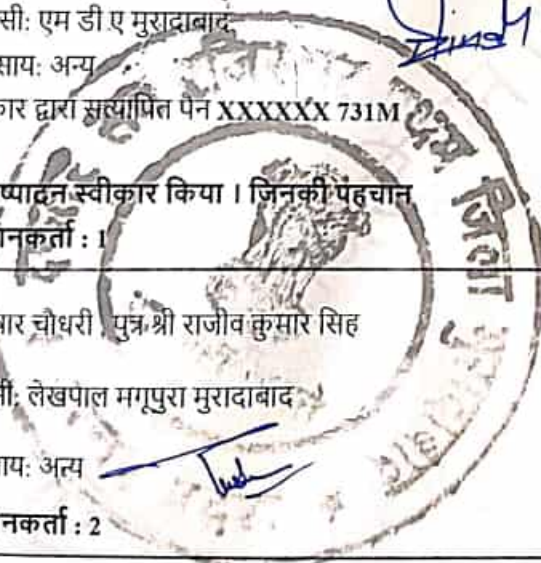 सी: एम डी ए मुरादाबाद
साय: अन्य
कार द्वारा सत्यापित पैन XXXXXX 731M
ष्पादन स्वीकार किया । जिनकी पहचान
ानकर्ता : 1
मार चौधरी , पुत्र श्री राजीव कुमार सिंह
सी: लेखपाल मगूपुरा मुरादाबाद
साय: अन्य
ानकर्ता : 2
प्रथम जिला मुरादाबाद